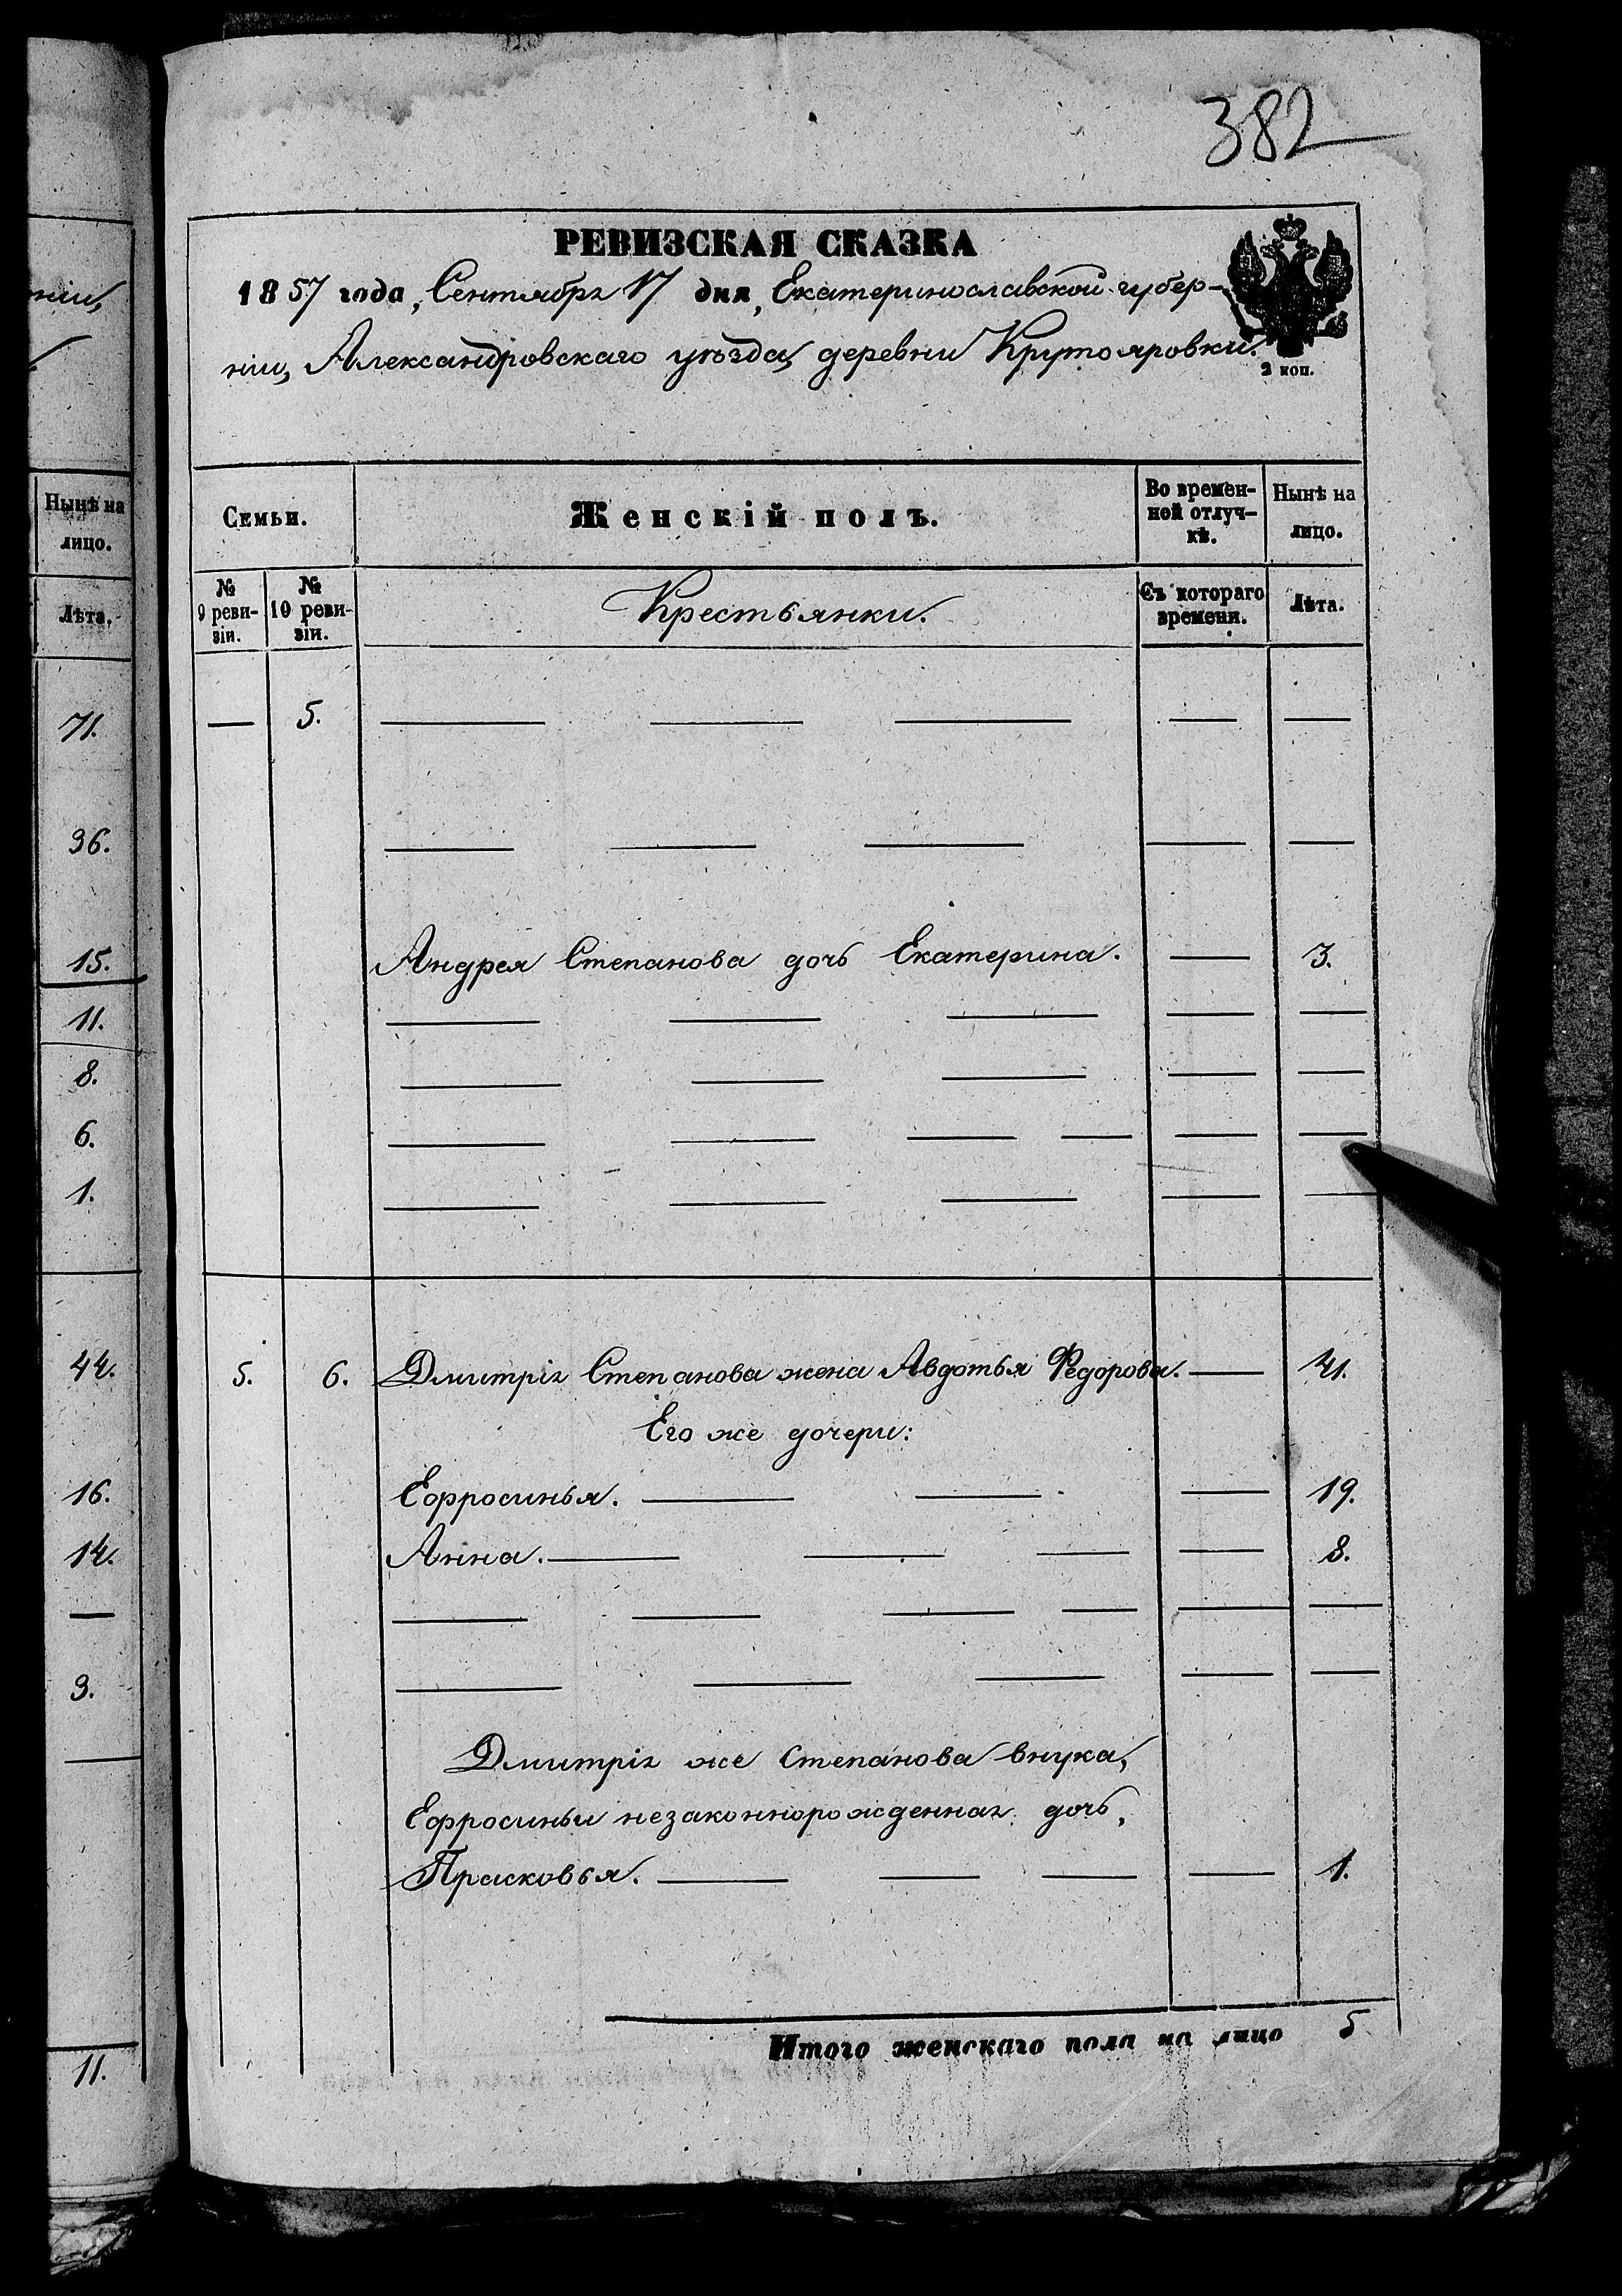 382
РЕВИЗСКАЯ СКАЗКА
1857 года, Сентября 17 дня, Екатеринославской губер-
нiи, Александровскаго уѣзда, деревни Крутояровки.
2 коп.
нiи,
Нынѣ на
лицо.
Лѣта.
71.
36.
15.
11.
8.
6.
1.
44.
16.
14.
—
3.
11.
Семьи.
Женскiй полъ.
Во времен-
ной отлуч-
кѣ.
Нынѣ на
лицо.
№
9 реви-
зiи.
№
10 реви-
зiи.
Крестьянки.
Съ котораго
времени.
Лѣта.
— 5. — — — — —
— — — — —
Андрея Степанова дочь Екатерина. — 3.
— — — — —
— — — — —
— — — — — —
— — — — —
5. 6. Дмитрiя Степанова жена Авдотья Федорова. — 41.
Его же дочери:
Ефросинья. — — — 19.
Анна. — — — — 8.
— — — — — —
— — — — —
Дмитрiя же Степанова внука,
Ефросиньи незаконнорожденная дочь,
Прасковья. — — — — 1.
Итого женскаго пола на лицо 5